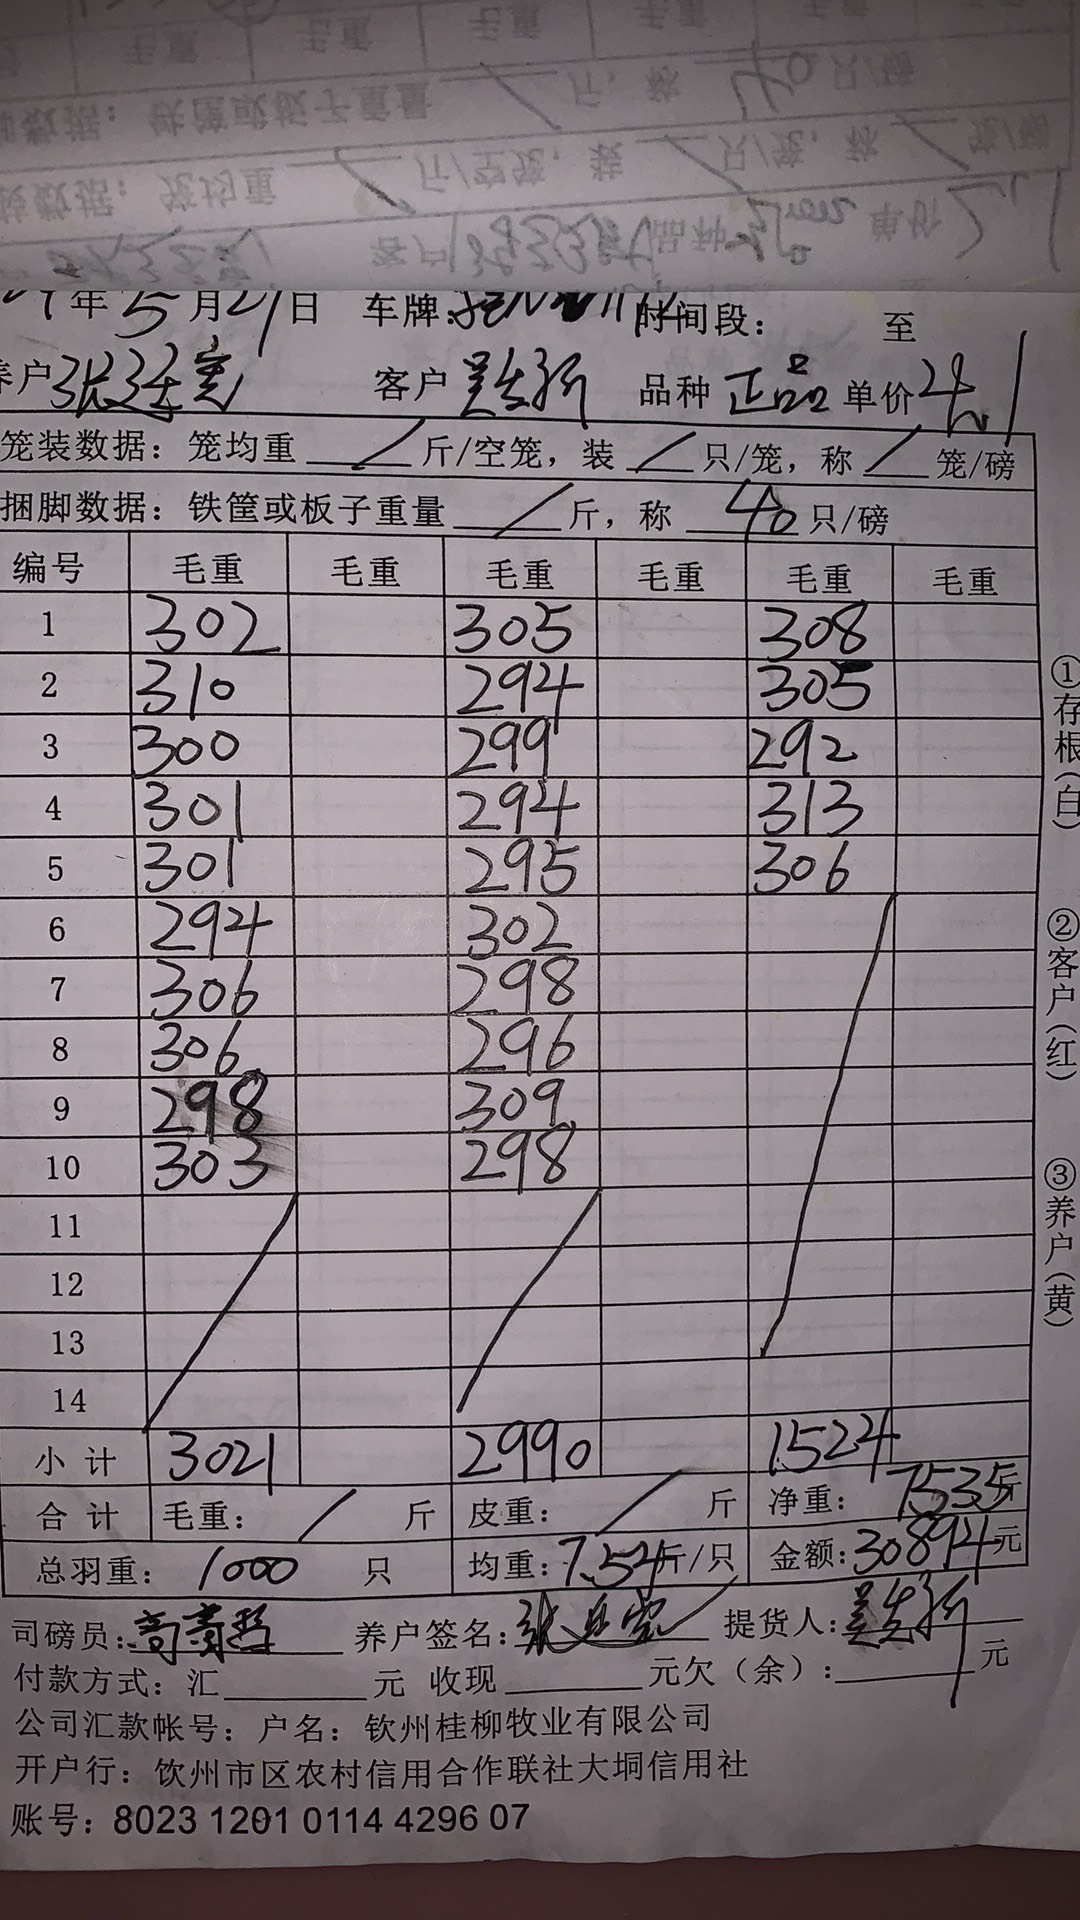 年5月21日 车牌: 时间段: 至
养户 张廷宽 客户 吴生新 品种 正品 单价 4.1
笼装数据：笼均重 / 斤/空笼，装 / 只/笼，称 / 笼/磅
捆脚数据：铁筐或板子重量 / 斤，称 40 只/磅
编号 毛重 毛重 毛重 毛重 毛重 毛重
1 302 305 308
2 310 294 305
3 300 299 292
4 301 294 313
5 301 295 306
6 294 302
7 306 298
8 306 296
9 298 309
10 303 298
11
12
13
14
小计 3021 2990 1524
合计 毛重： / 斤 皮重： / 斤 净重： 7535斤
总羽重： 1000 只 均重：7.54斤/只 金额：30894元
司磅员： 养户签名： 提货人：吴生新
付款方式：汇 元 收现 元欠（余）： 元
公司汇款帐号：户名：钦州桂柳牧业有限公司
开户行：钦州市区农村信用合作联社大垌信用社
账号：8023 1201 0114 4296 07
①存根（白）
②客户（红）
③养户（黄）